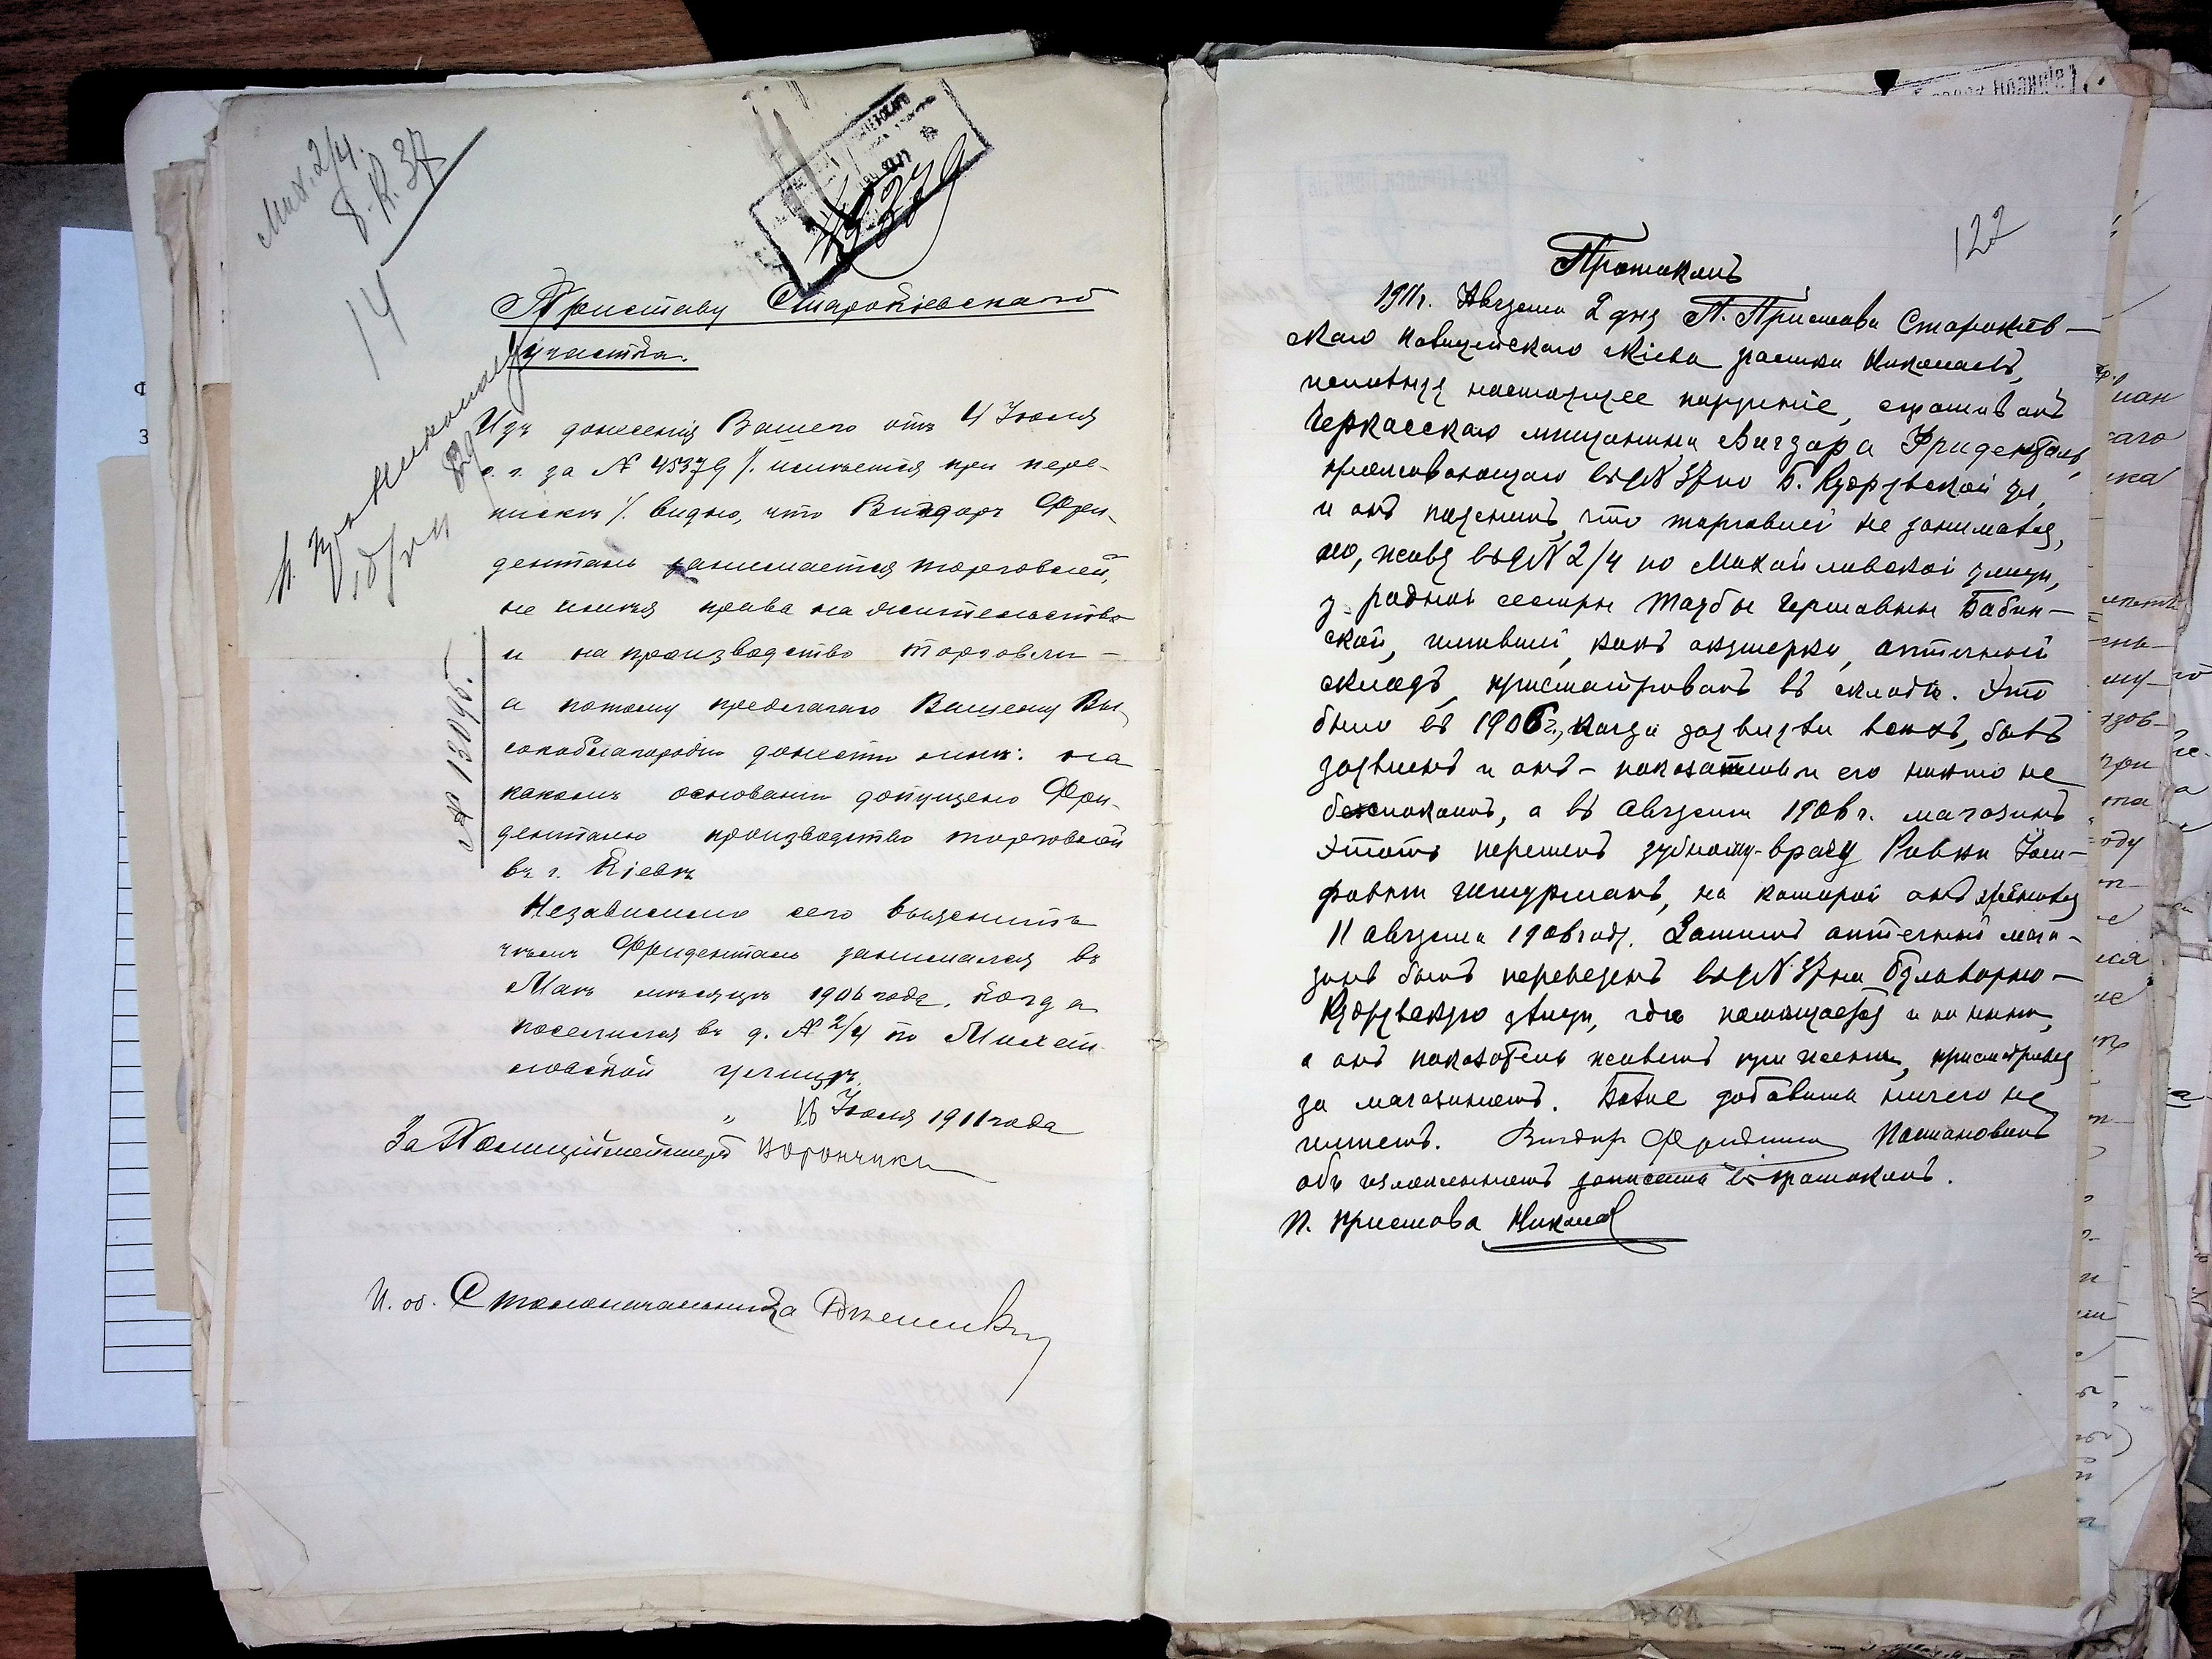 Мих. 2/4.
Б.-К. 37
14
Приставу Старокіевскаго
участка.
Изъ донесенія Вашего отъ 4 Іюля
с. г. за № 45379 /. имѣется при пере-
пискѣ /. видно, что Вигдоръ Фри-
денталь занимается торговлей,
не имѣя права на жительство
и на производство торговли –
а потому предлагаю Вашему Вы-
сокоблагородію донести мнѣ: на
какомъ основаніи допущено Фри-
денталю производство торговли
въ г. Кіевѣ
Независимо сего выяснить
чѣмъ Фриденталь занимался въ
Маѣ мѣсяцѣ 1906 года, когда
поселился въ д. № 2/4 по Михай-
ловской улицѣ.
„ 16 Іюля 1911 года
За Полиціймейстера
И. об. Столоначальника
№ 13095.
п. пр. Николаеву
122
Протоколъ
1911 г. Августа 2 дня П. Пристава Старокіев-
скаго полицейскаго Кіева участка Николаевъ,
исполняя настоящее порученіе, спрашивалъ
Черкасскаго мѣщанина Вигдора Фриденталь,
проживающаго въ д № 37 по Б. Кудрявской ул,
и онъ пояснилъ, что торговлей не занимался,
но, живя въ д № 2/4 по Михайловской улицѣ,
у родной сестры Таубы Гершовны Бабин-
ской, имѣвшей, какъ акушерка, аптечный
складъ, присматривалъ въ складѣ. Это
было въ 1906 г., когда
и онъ – показатель и его никто не
безпокоилъ, а въ Августѣ 1906 г. магазинъ
этотъ перешелъ зубному-врачу Ривкѣ Іоси-
фовнѣ Штурманъ, на которой онъ женился
11 августа 1906 году. Затѣмъ аптечный мага-
зинъ былъ переведенъ въ д № 37 на Бульварно-
Кудрявскую улицу, гдѣ помѣщается и по нынѣ,
а онъ показатель живетъ при женѣ, присматривая
за магазиномъ. Болѣе добавить ничего не
имѣетъ. Вигдоръ Фриденталь Постановилъ
объ изложенномъ записать въ протоколъ.
П. Пристава Николаев